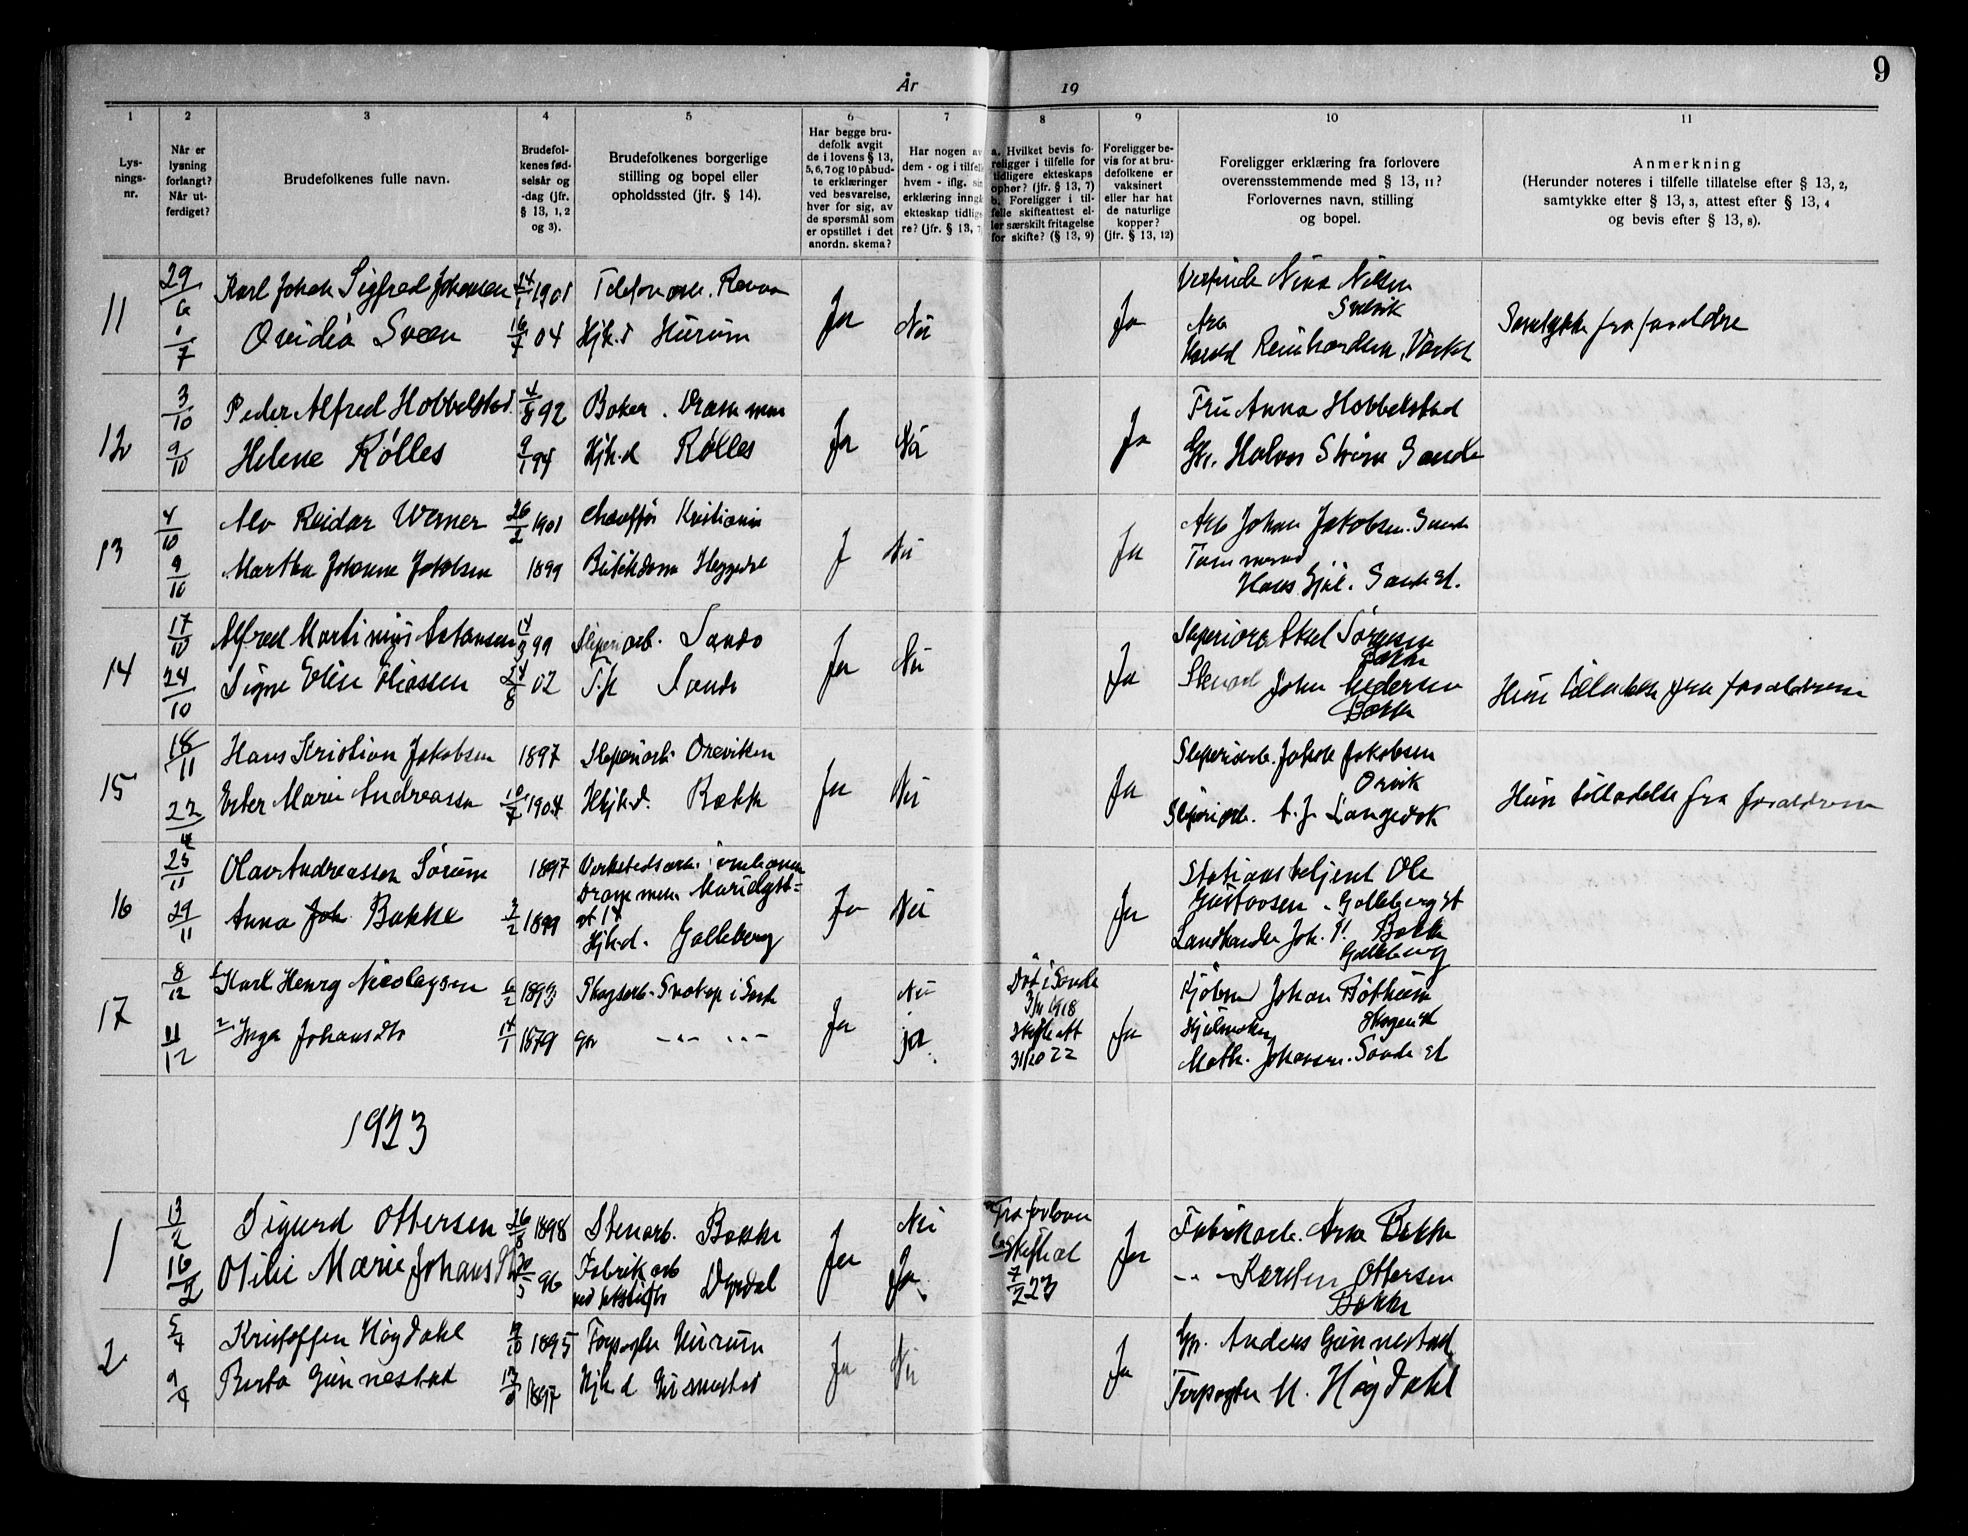 År 19
9
1 2 3 4 5 6 7 8 9 10 11
Lys-
nings-
nr.
Når er
lysning
forlangt?
Når ut-
ferdiget?
Brudefolkenes fulle navn.
Brudefol-
kenes fød-
selsår og
-dag (jfr.
§ 13, 1, 2
og 3).
Brudefolkenes borgerlige
stilling og bopel eller
opholdssted (jfr. § 14).
Har begge bru-
defolk avgit
de i lovens § 13,
5, 6, 7 og 10 påbud-
te erklæringer
ved besvarelse,
hver for sig, av
de spørsmål som
er opstillet i det
anordn. skema?
Har nogen av
dem - og i tilfelle
hvem - iflg. sin
erklæring inngå
ekteskap tidlige-
re? (jfr. § 13, 7
a. Hvilket bevis fo-
religger i tilfelle for
tidligere ekteskaps
ophør? (jfr. § 13, 7)
b. Foreligger i til-
felle skifteattest el-
ler særskilt fritagelse
for skifte? (§ 13, 9)
Foreligger be-
vis for at bru-
defolkene er
vaksinert
eller har hat
de naturlige
kopper?
(jfr. § 13, 12)
Foreligger erklæring fra forlovere
overensstemmende med § 13, 11?
Forlovernes navn, stilling
og bopel.
Anmerkning
(Herunder noteres i tilfelle tillatelse efter § 13, 2,
samtykke efter § 13, 3, attest efter § 13, 4
og bevis efter § 13, 8).
11
29/6 Karl Johan Sigfred Johansen 1901 Telefonarb. Nina Nilsen
Svelvik
1/7 Ovidia Sveen 16/7 04 Hjk.d Hurum Ja Nei Ja Arb
Harald Reinhardsen, Samtykke fra foreldre
12
3/10 Peder Alfred Hobbelstad 4/8 92 Baker. Drammen Fru Anna Hobbelstad
9/10 Helene Rølles 94 Hjk.d Rølles Ja Nei Ja Gbr. Halvor Sande
13
4/10 Alv Reidar Werner 26/2 1901 Chauffør Kristiania Arb Johan Jakobsen. Sande
9/10 Martha Johanne Jakobsen 1899 Butikdame Heggedal J Nei Ja
Hans Sande st.
14
17/10 Alfred Martinius Antonsen 99 Sliperiarb. Sande Sliperiarb Aksel Sørensen
Bakke
24/10 Signe Elise Eliassen 24/8 02 Sande Ja Nei Ja John Pedersen
Bakke
Hun tilladelse fra foreldrene
15
18/11 Hans Kristian Jakobsen 1897 Sliperiarb. Oreviken Sliperiarb. Jakob Jakobsen
Orvik
22/11 Ester Marie Andreassen 10/7 1904 Hjk.d. Bakke Ja Nei Ja Sliperiarb. A. J. Langedok
Hun tilladelse fra foreldrene
16
25/11 Olav Andreassen Sørum 1897 Verkstedsarb.
Drammen
Stationsbetjent Ole
Gustavsen. Galleberg st
29/11 Anna Joh Bakke 3/2 1899 Hjk.d. Galleberg Ja Nei Ja Landhandler Joh. P. Bakke
Galleberg
17
8/12 1 Karl Henry Nicolaysen 6/2 1893 Skogsarb. i Sande Nei Død i Sande
1918
Johan Bøthun
Skogen st
11/12 2 Inga Johansdtr 14/1 1879 Ja ja Skifteatt
31/10 22 Ja
Math. Johansen. Sande st
1923
1
13/2 Sigurd Ottersen 26/8 1898 Stenarb. Bakke Nei Fra forlover
Fabrikarb. Arne Bakke
16/2 Otilie Marie Johansdtr 96 Fabrikarb Ja Ja Skifteat
7/2 23 Ja Karsten Ottersen
Bakke
2
5/4 Kristoffer Høgdahl 1895 Torpegter Hurum Gbr. Anders Gunnestad
9/4 Berta Gunnestad 1897 Hjk d Gunnestad Ja Nei Ja M. Høgdahl